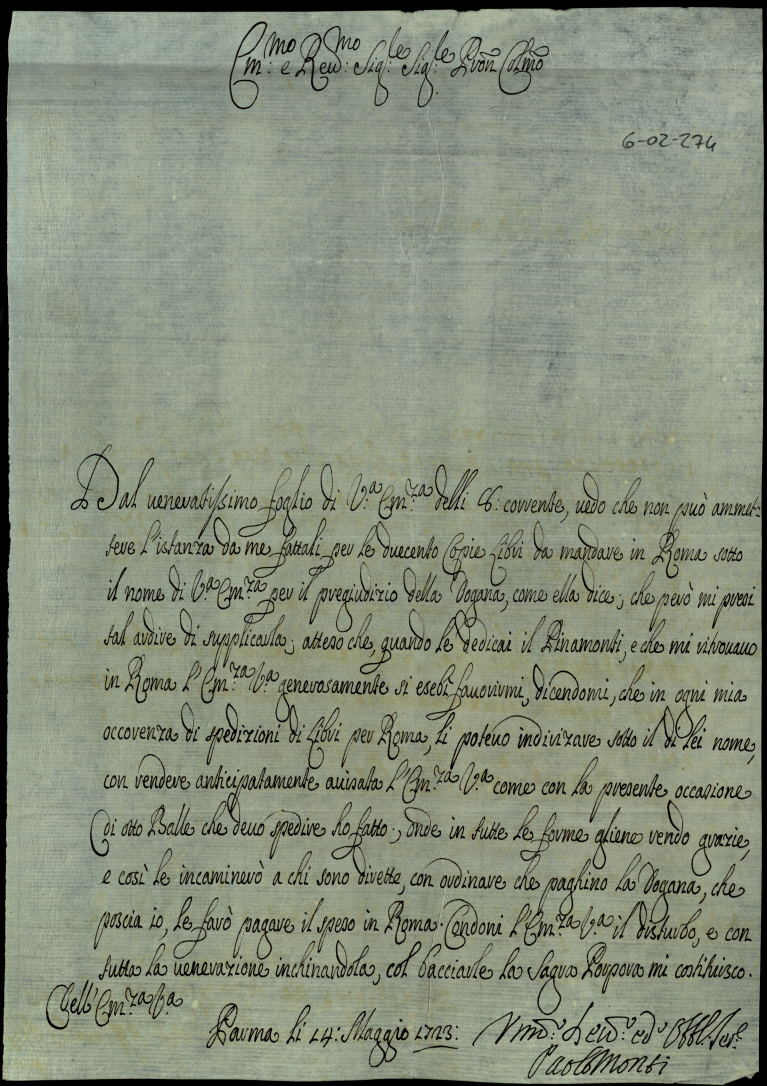 Em:mo e Reu:mo Sig:le Sig:le Pron Colmo
6-02-274
Dal ueneratissimo foglio di V.a Em:za delli 8: corrente, uedo che non può ammet:
tere l'istanza da me fattali per le duecento Copie Libri da mandare in Roma sotto
il nome di V.a Em:za per il pregiudizio della Dogana, come ella dice; che però mi presi
tal ardire di supplicarla; atteso che, quando le dedicai il Pinamonti, e che mi ritrouauo
in Roma l'Em:za V.a generosamente si esebì fauorirmi, dicendomi, che in ogni mia
occorenza di spedizioni di Libri per Roma, li poteuo indirizare sotto il di lei nome,
con rendere anticipatamente auisata l'Em:za V.a come con la presente occasione
di otto Balle che deuo spedire ho fatto:, onde in tutte le forme gliene rendo grazie,
e così le incaminerò a chi sono dirette, con ordinare che paghino la Dogana, che
poscia io, le farò pagare il speso in Roma. Condoni l'Em:za V.a il disturbo, e con
tutta la uenerazione inchinandola, col bacciarle la Sagra Porpora mi costituisco.
Dell'Em:za V.a
Parma li 14: Maggio 1723:
Vmil:o Deu:o ed Obbl: Ser:e
Paolo Monti